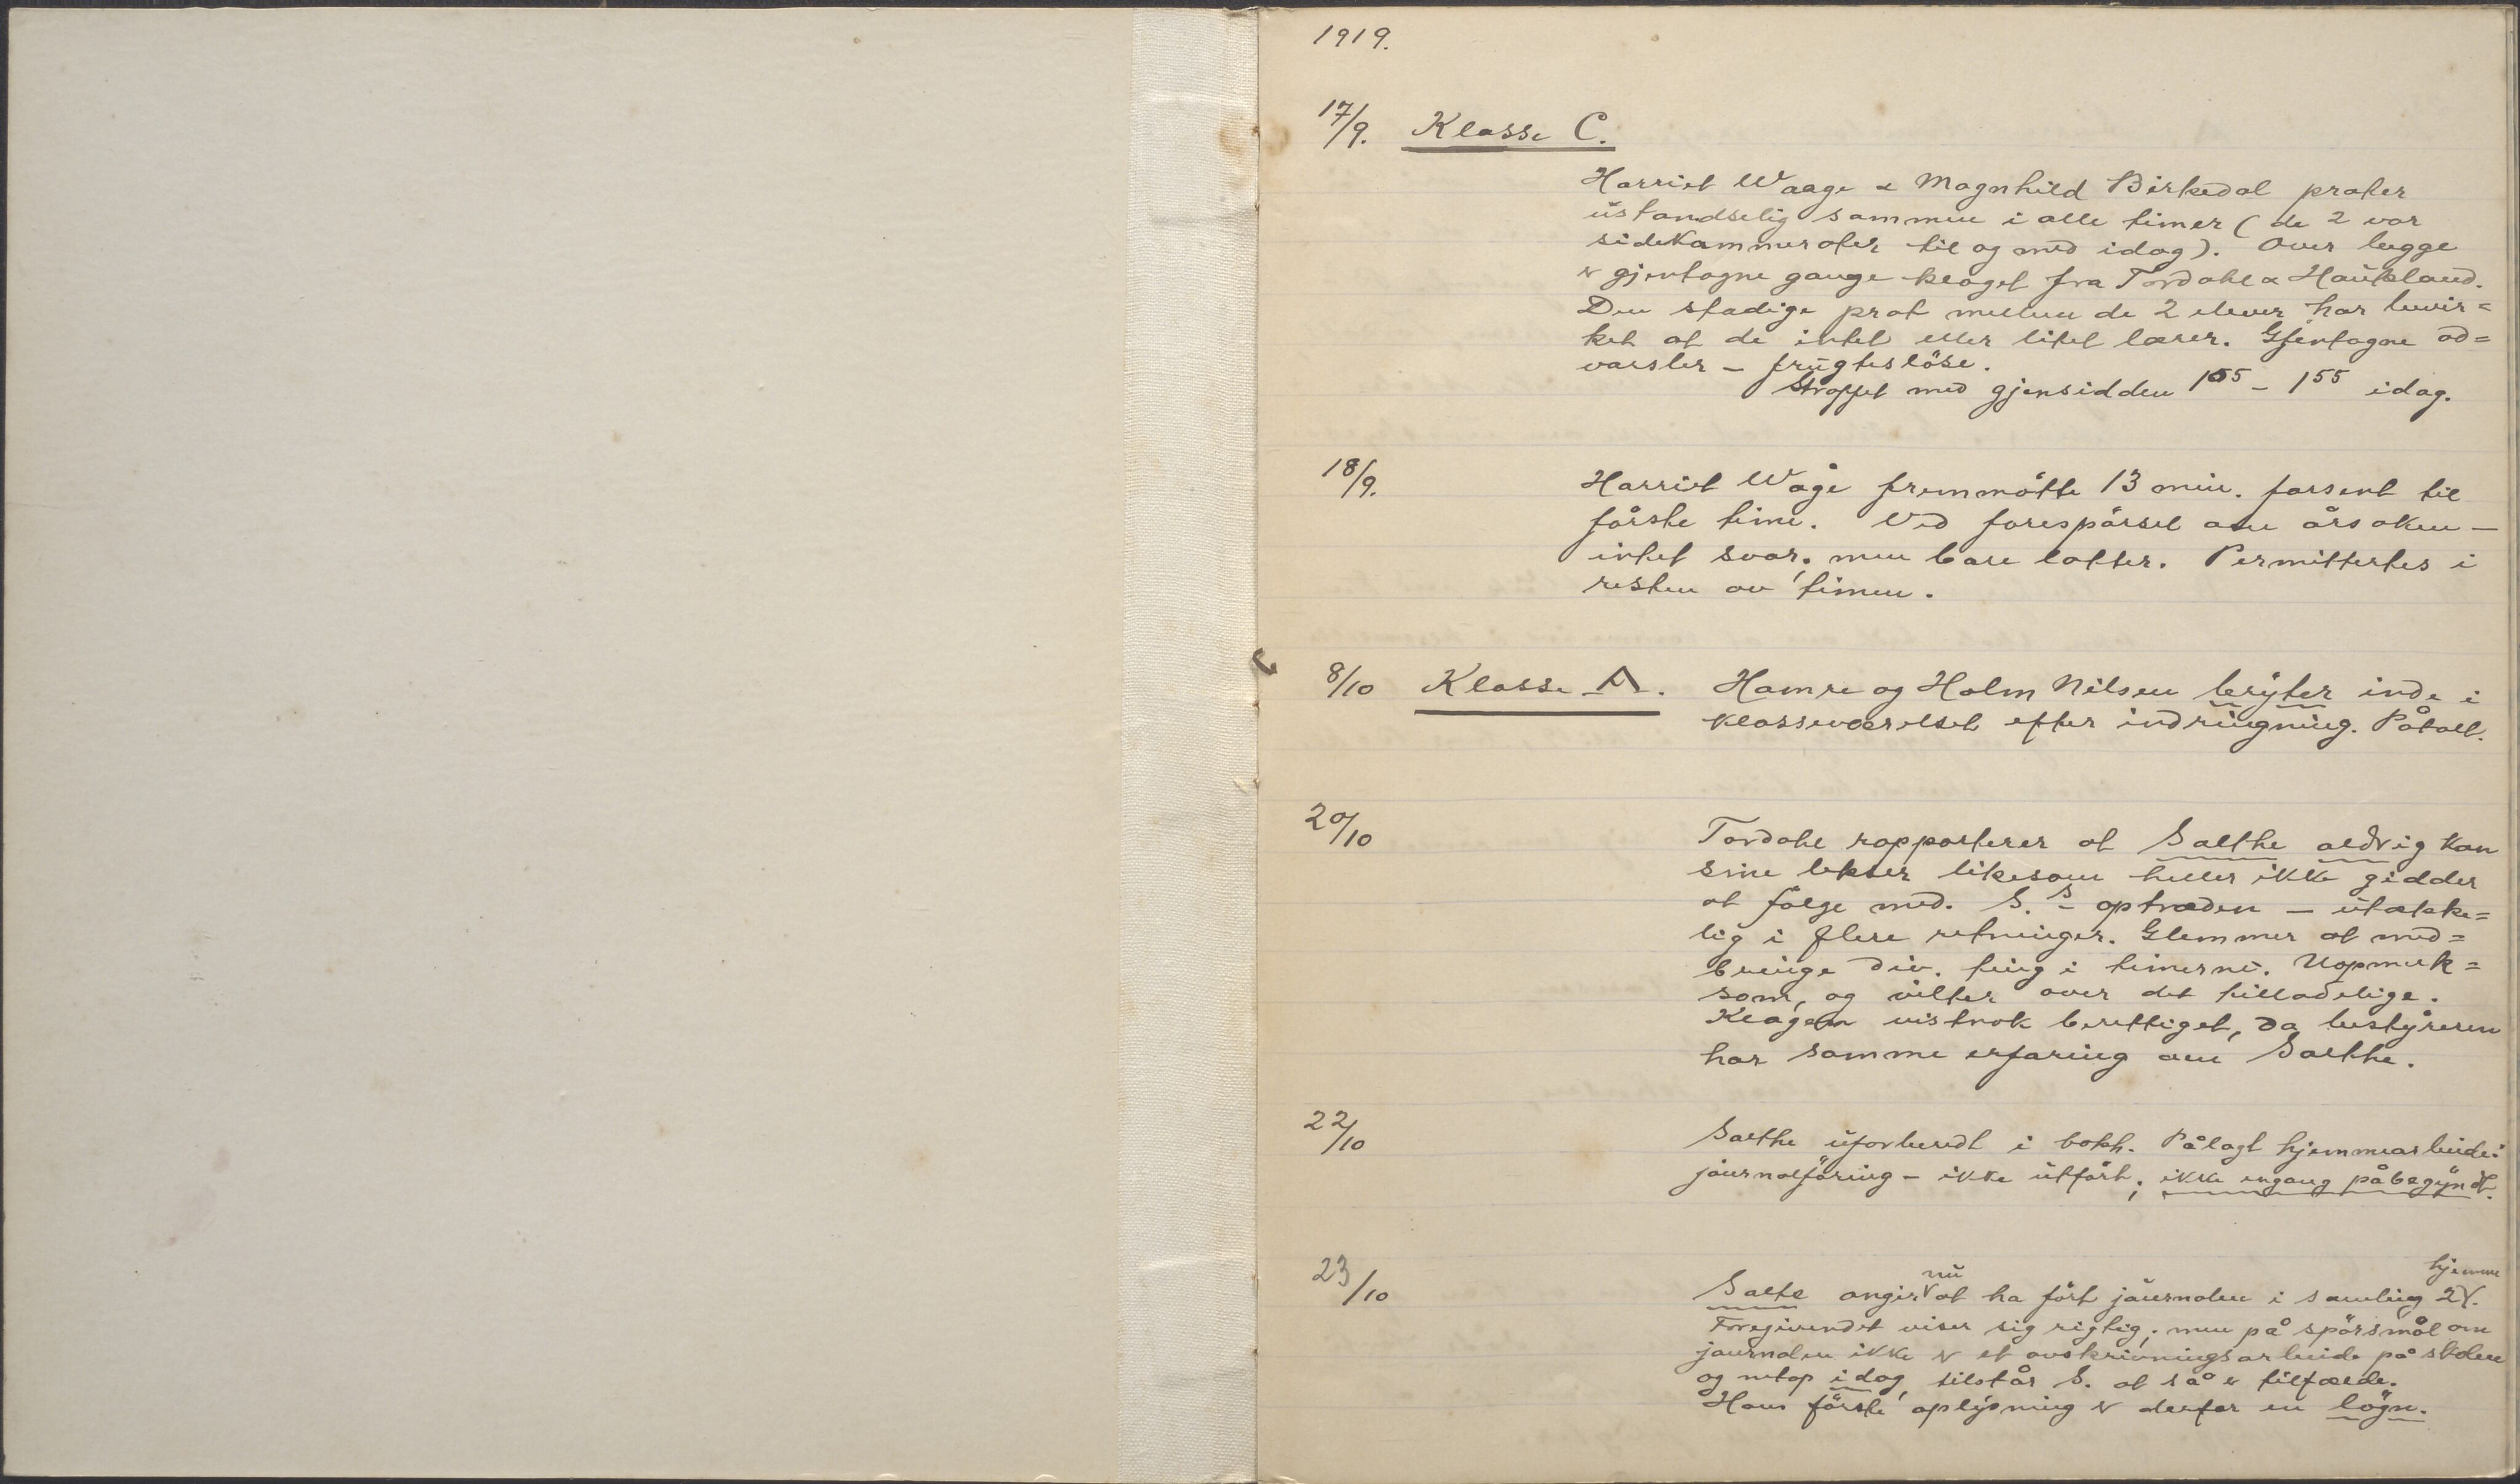 1919.
17/9. Klasse C.
Harriet Waage & Magnhild Birkedal prater
ustandselig sammen i alle timer (de 2 var
sidekammerater til og med idag). Over begge
er gjentagne gange klaget fra Tordahl & Haukland.
Den stadige prat mellem de 2 elever har bevir=
ket at de intet eller litet lærer. Gjentagne ad=
varsler - frugtesløse.
Straffet med gjensidden 1⁰⁵ - 1⁵⁵ idag.
18/9. Harriet Wåge fremmøtte 13 min. forsent til
første time. Ved forespørsel om årsaken -
intet svar; men bare latter. Permittertes i
resten av timen.
8/10 Klasse A. Hamre og Holm Nilsen bryter inde i
klasseværelset efter indringning. Påtalt.
20/10 Tordahl rapporterer at Salthe aldrig kan
sine lekser likesom heller ikke gidder
at følge med. S.s - optræden - utække=
lig i flere retninger. Glemmer at med=
bringe div. ting i timerne. Uopmerk=
som, og vilter over det tilladelige.
Klagen vistnok berettiget, da bestyreren
har samme erfaring om Salthe.
22/10 Salthe uforberedt i bokh. Pålagt hjemmearbeide i
journalføring - ikke utført; ikke engang påbegyndt.
23/10 Salte angir nu at ha ført journalen i samling 2 hjemme.
Foregivendet viser sig rigtig; men på spørsmål om
journalen ikke er et avskrivningsarbeide på skolen
og netop idag, tilstår S. at så er tilfælde.
Hans første oplysning er derfor en løgn.